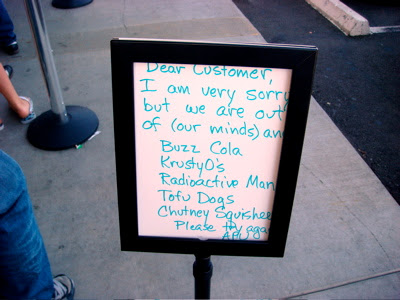 Dear Customer,
I am very sorry
but we are out
of (our minds) an
Buzz Cola
KrustyO's
Radioactive Man
Tofu Dogs
Chutney Squishee
Please try aga
Apu